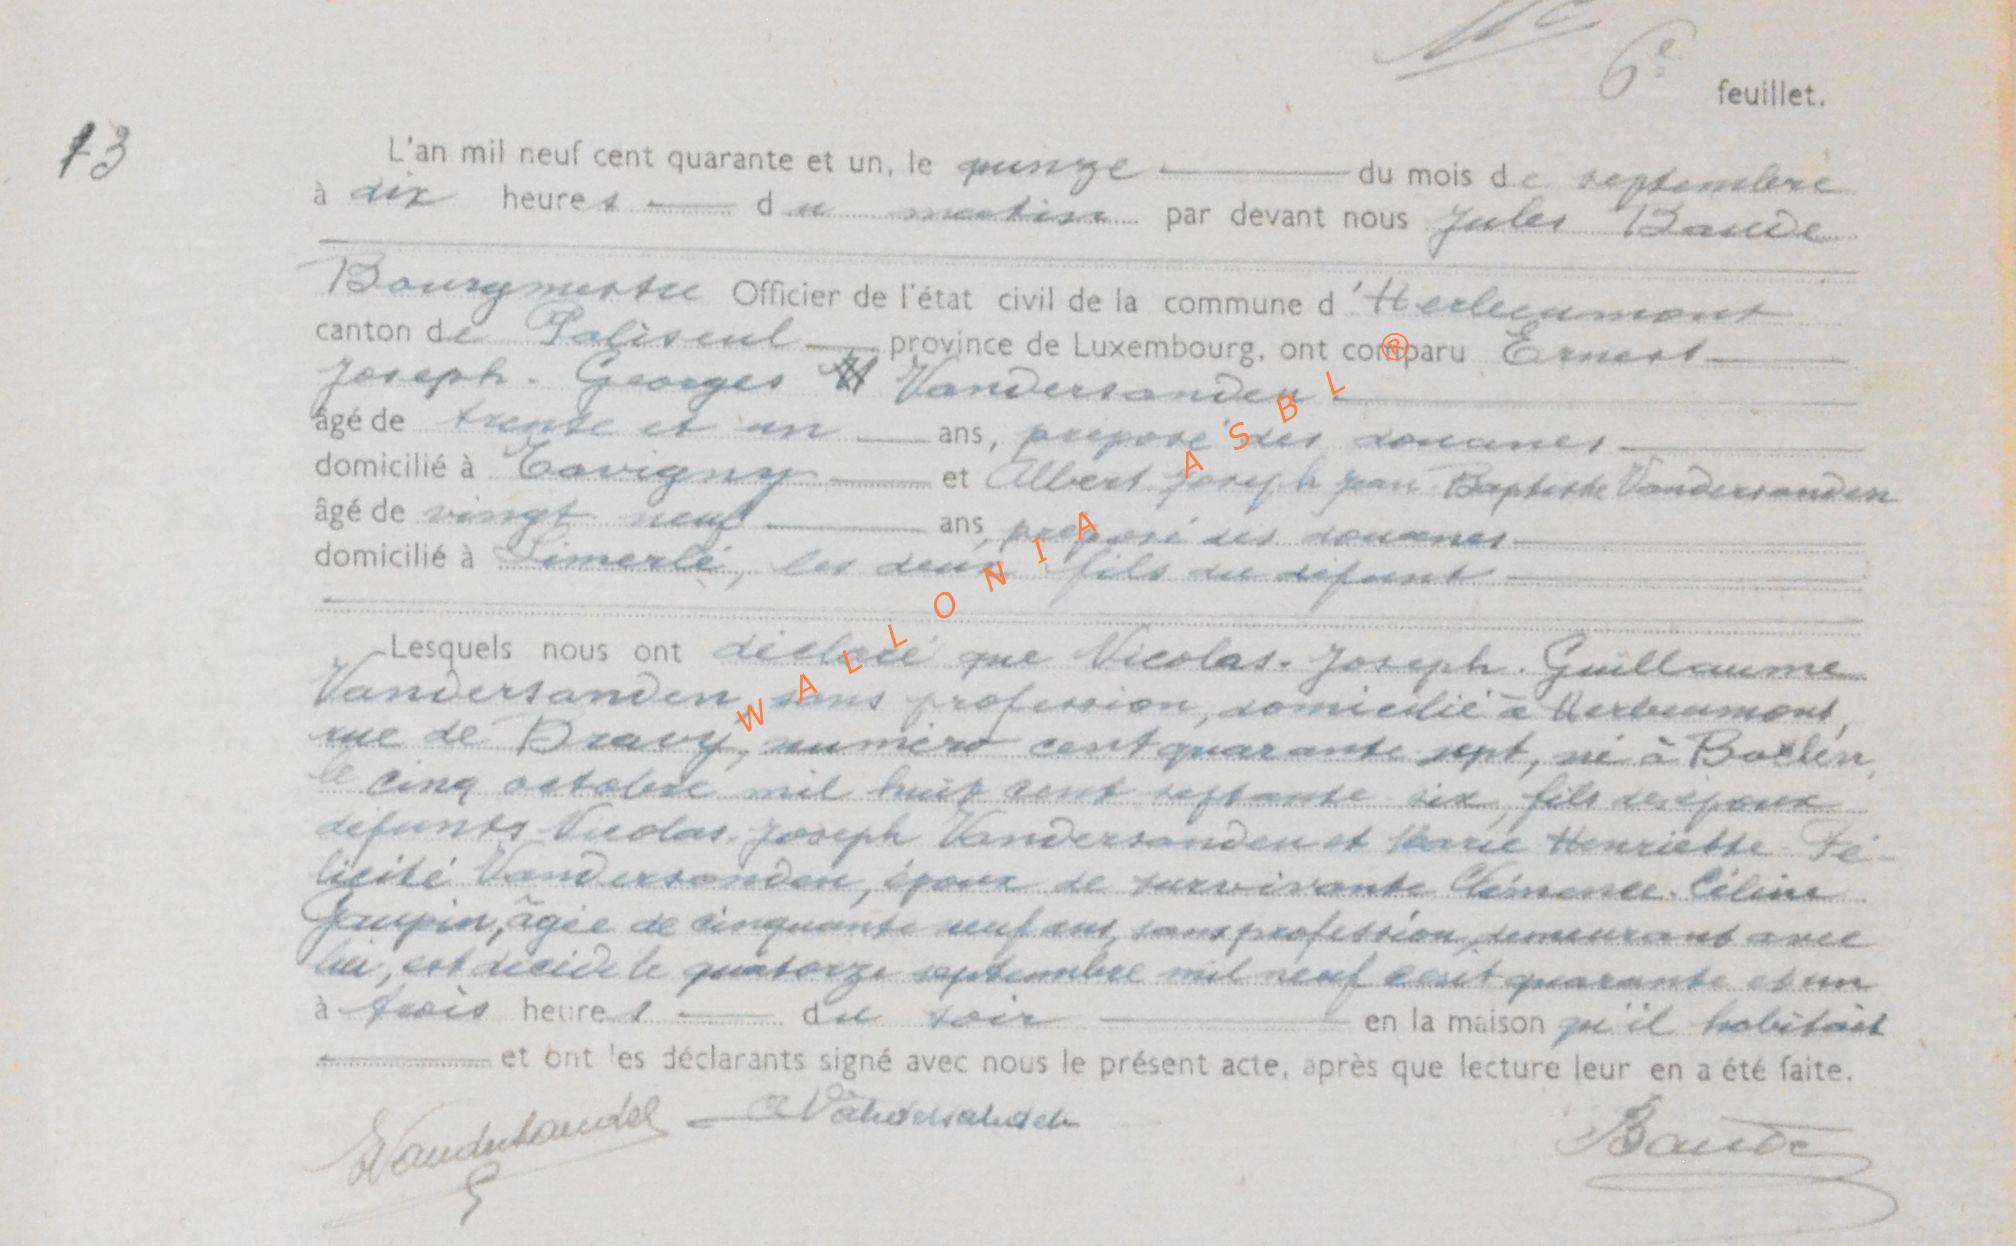 6e feuillet.
13
L'an mil neuf cent quarante et un, le quinze du mois de septembre
à dix heures du matin par devant nous Jules Baude
Bourgmestre Officier de l'état civil de la commune d'Herbeumont
canton de Paliseul province de Luxembourg, ont comparu Ernest
Joseph-Georges Vandersanden
âgé de trente et un ans, préposé des douanes
domicilié à Tavigny et Albert Joseph Jean Baptiste Vandersanden
âgé de vingt neuf ans, préposé des douanes
domicilié à Limerlé, les deux fils du défunt
Lesquels nous ont déclaré que Nicolas-Joseph-Guillaume
Vandersanden, sans profession, domicilié à Herbeumont,
rue de Bravy, numéro cent quarante sept, né à
le cinq octobre mil huit cent septante six, fils des époux
défunts Nicolas-Joseph Vandersanden et Marie Henriette Fé-
licité Vandersanden, époux de survivante Clémence-Céline
Jaupin, âgée de cinquante neuf ans, sans profession, demeurant avec
lui, est décédé le quatorze septembre mil neuf cent quarante et un
à trois heures du soir en la maison qu'il habitait
et ont les déclarants signé avec nous le présent acte, après que lecture leur en a été faite.
EVandersanden A Vandersanden Baude
WALLONIA ASBL ®